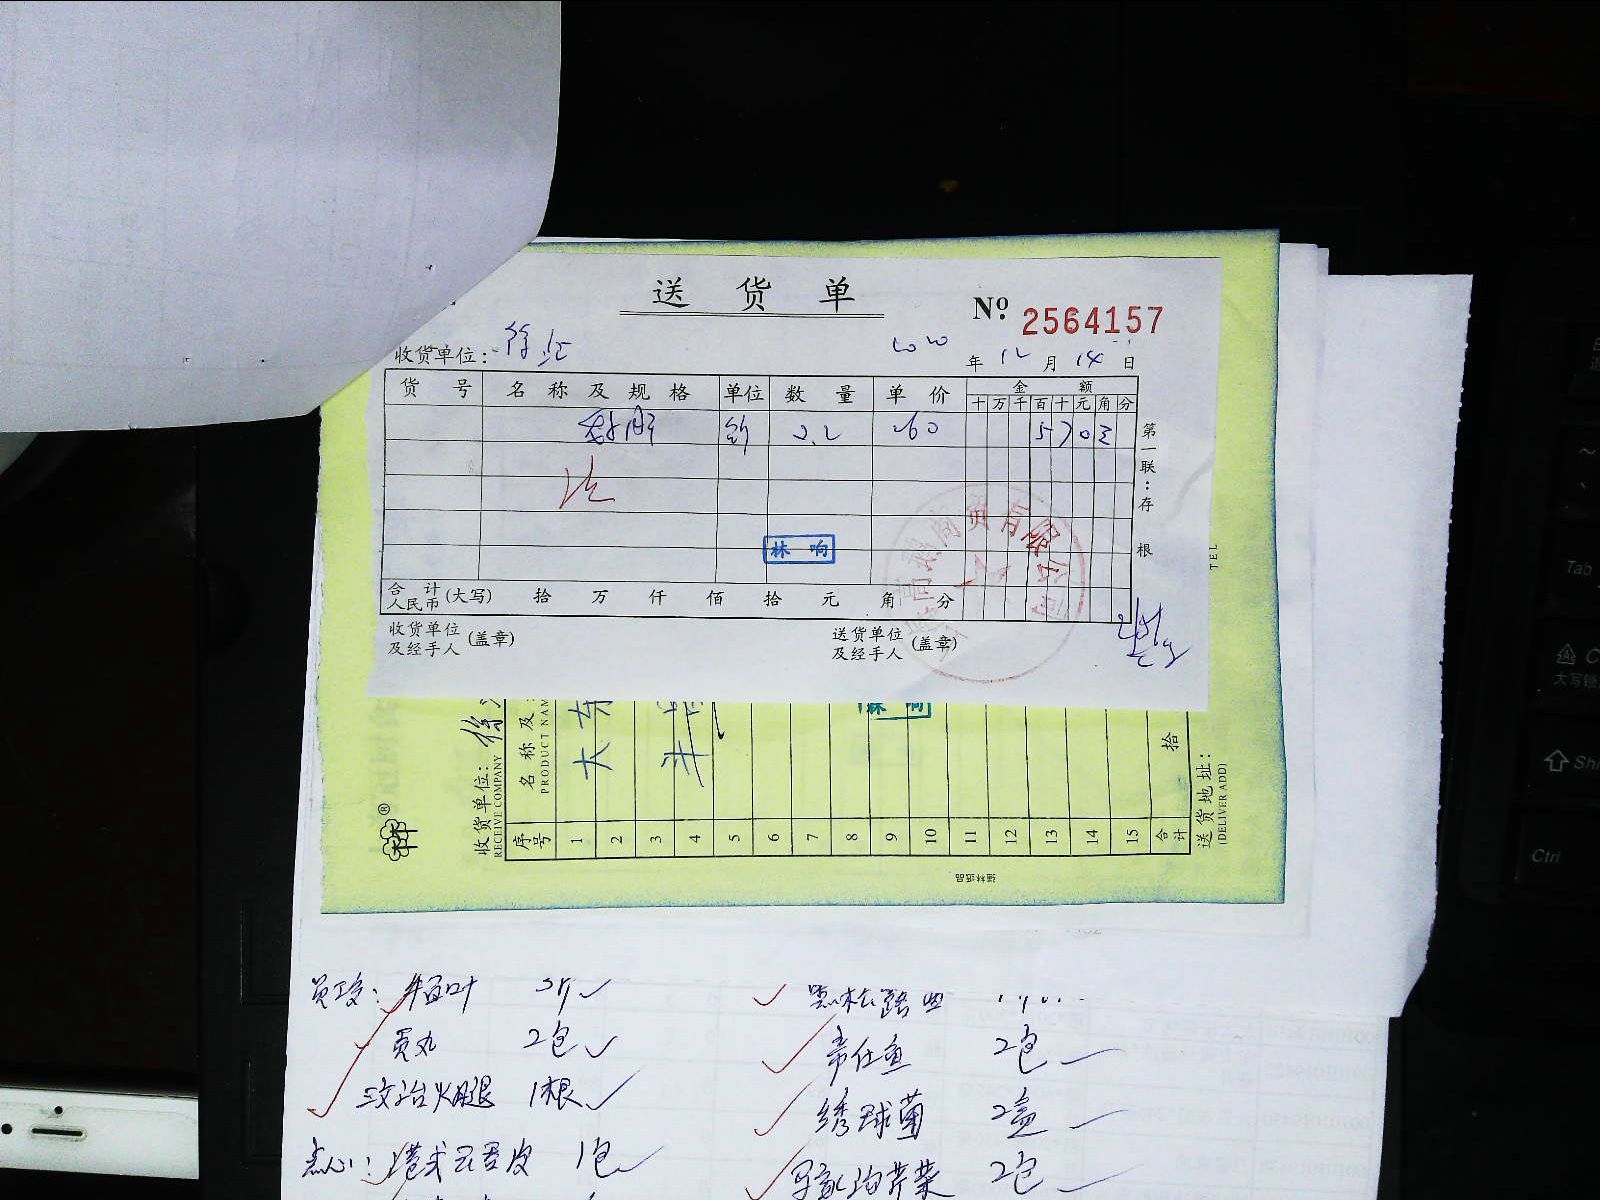 送货单
№ 2564157
收货单位: 徐汇 2020 年 12 月 14 日
货号 名称及规格 单位 数量 单价 金额
十 万 千 百 十 元 角 分
斤 2.2 260 5 7 0
第一联:存根
林响
合计人民币(大写) 拾 万 仟 佰 拾 元 角 分
收货单位及经手人(盖章) 送货单位及经手人(盖章)
TEL
收货单位: 徐
RECEIVE COMPANY
序号 名称及
PRODUCT NAM
1 大
2
3
4
5
6
7
8
9
10
11
12
13
14
15
合计 拾
林响
送货地址:
(DELIVER ADD)
员工: 牛百叶
贡丸 2包
火腿 1根
点心: 港式云吞皮 1包
2包
绣球菌 2盒
芹菜 2包
Tab
大写锁
Shi
Ctrl